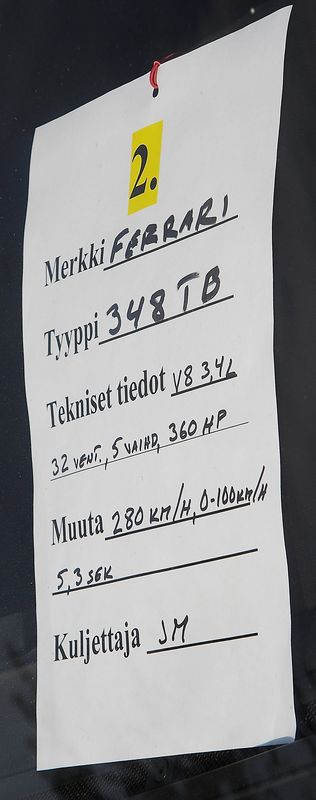 2.
Merkki FERRARI
Tyyppi 348 TB
Tekniset tiedot V8 3,4L
32 VENT., 5 VAIHD, 360 HP
Muuta 280 KM/H, 0-100KM/H
5,3 SEK
Kuljettaja JM